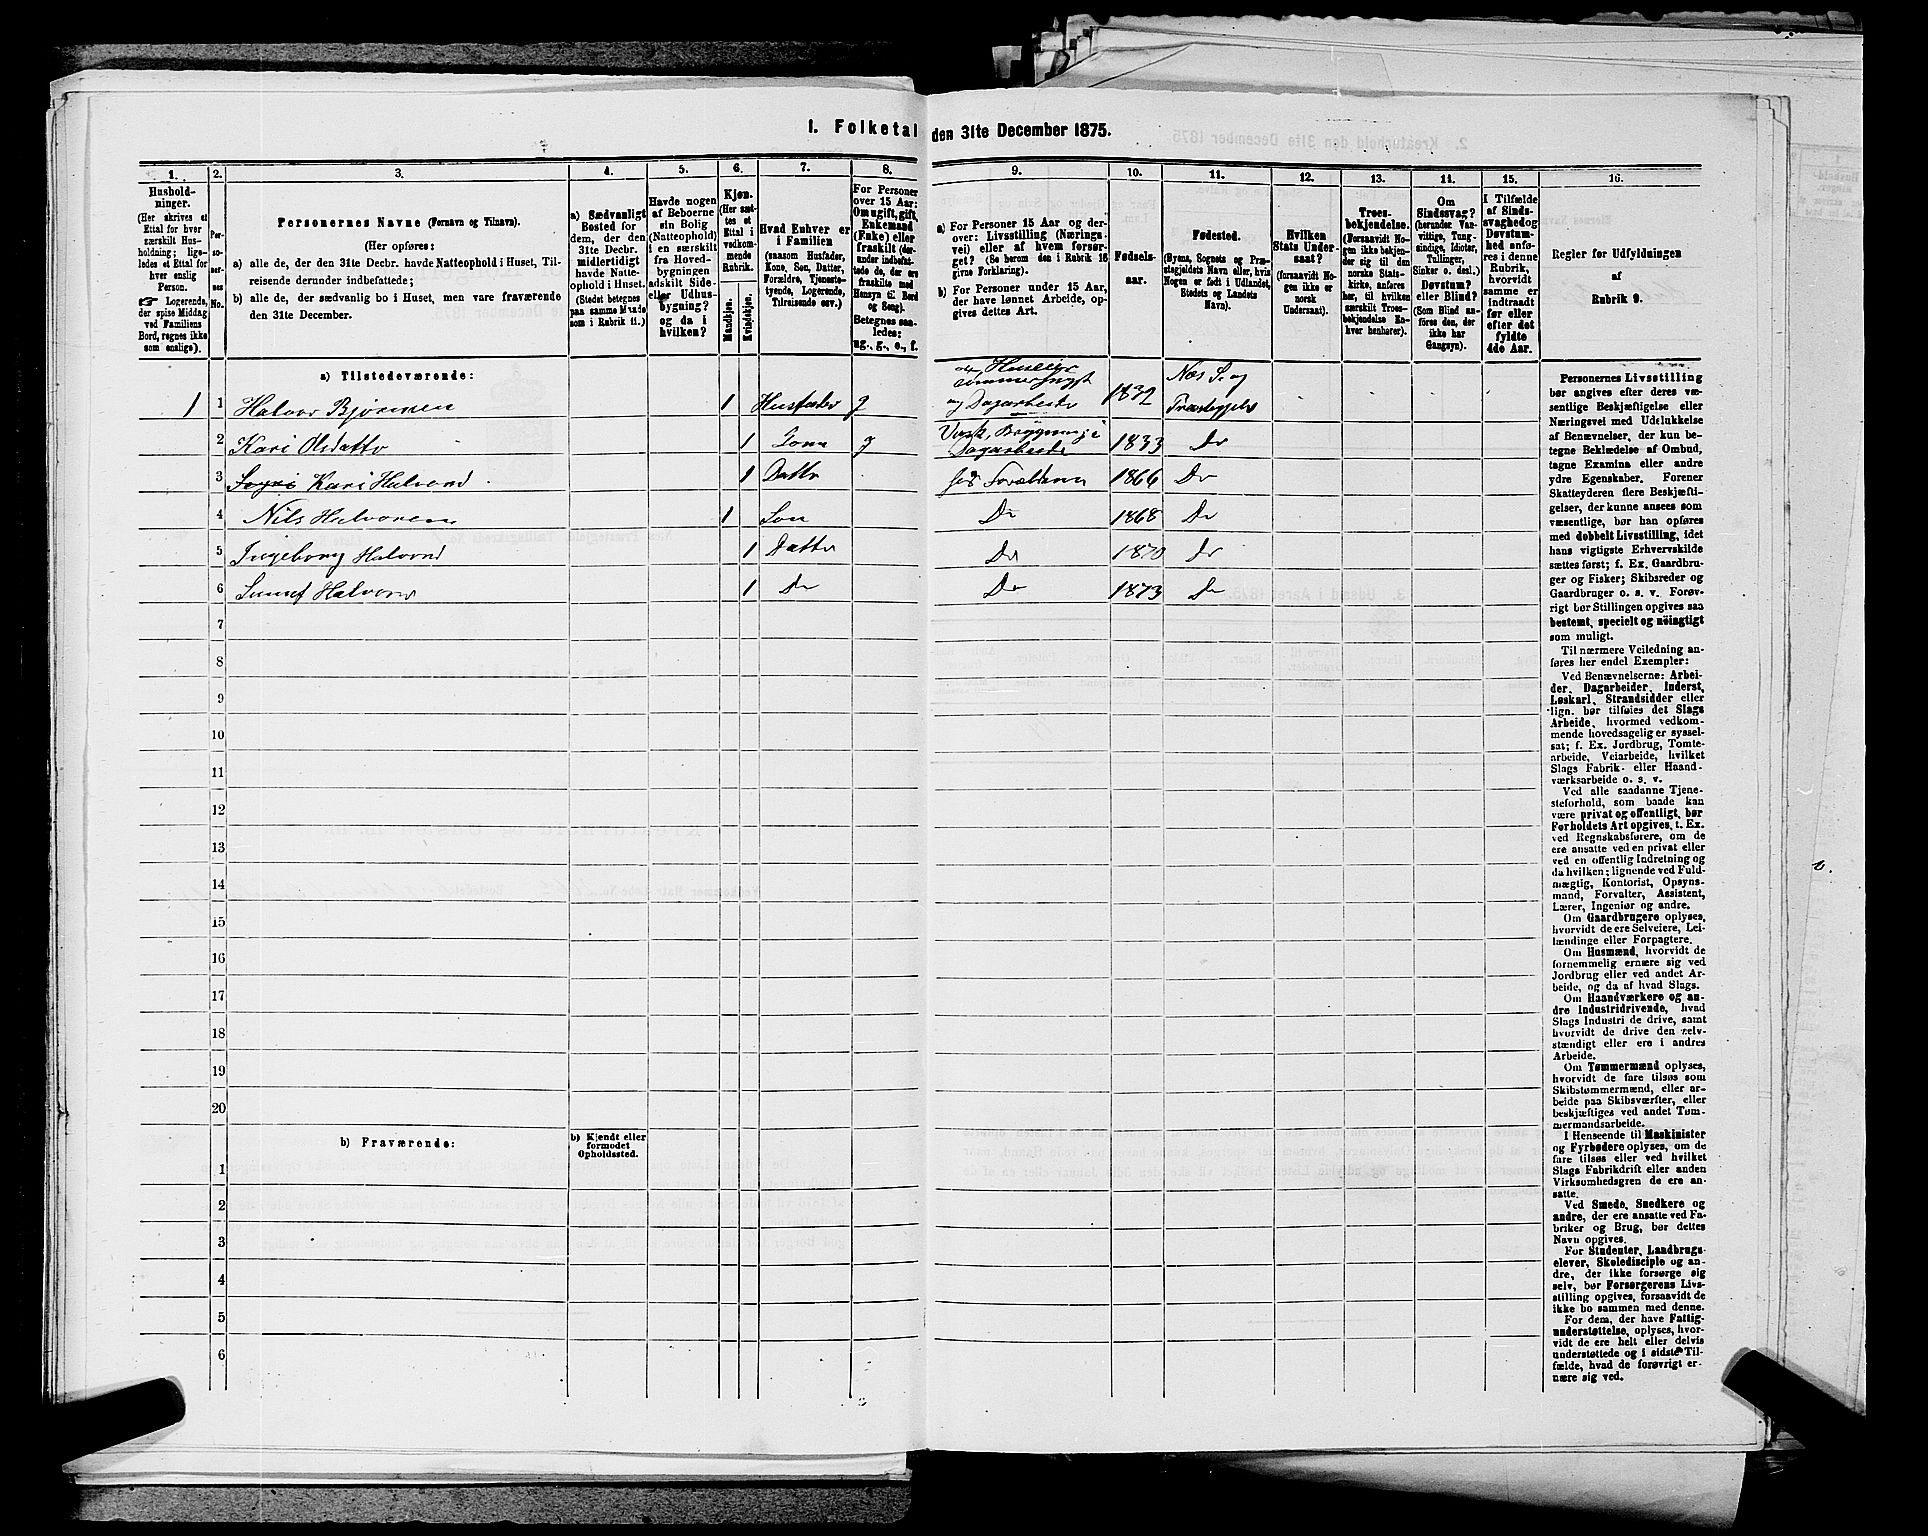 1. Folketal den 31te December 1875.
1.
2.
3.
4.
5.
6.
7.
8.
9.
10.
11.
12.
13.
14.
15.
16.
Hushold-
ninger.
(Her skrives et
Ettal for hver
særskilt Hus-
holdning; lige-
ledes et Ettal for
hver enslig
Person.
☞ Logerende,
der spise Middag
ved Familiens
Bord, regnes ikke
som enslige).
Per-
so-
ner-
nes
No.
Personernes Navne (Fornavn og Tilnavn).
(Her opføres:
a) alle de, der den 31te Decbr. havde Natteophold i Huset, Til-
reisende derunder indbefattede;
b) alle de, der sædvanlig bo i Huset, men vare fraværende
den 31te December.
a) Sædvanligt
Bosted for
dem, der den
31te Decbr.
midlertidigt
havde Natte-
ophold i Huset.
(Stedet betegnes
paa samme Maade
som i Rubrik 11.)
Havde nogen
af Beboerne
sin Bolig
(Natteophold)
i en særskilt
fra Hoved-
bygningen
adskilt Side-
eller Udhus-
bygning?
og da i
hvilken?
Kjøn.
(Her sæt-
tes et
Ettal i
vedkom-
mende
Rubrik.
Mandkjøn.
Kvindekjøn.
Hvad Enhver er
i Familien
(saasom Husfader,
Kone, Søn, Datter,
Forældre, Tjeneste-
tyende, Logerende,
Tilreisende osv.)
For Personer
over 15 Aar:
Om ugift, gift,
Enkemand
(Enke) eller
fraskilt (der-
under indbefat-
tede de, der ere
fraskilte med
Hensyn til Bord
og Seng).
Betegnes saa-
ledes:
ug., g., e., f.
a) For Personer 15 Aar og der-
over: Livsstilling (Nærings-
vei) eller af hvem forsør-
get? (Se herom den i Rubrik 16
givne Forklaring).
b) For Personer under 15 Aar,
der have lønnet Arbeide, op-
gives dettes Art.
Fødsels-
aar.
Fødested.
(Byens, Sognets og Præ-
stegjeldets Navn eller, hvis
Nogen er født i Udlandet,
Stedets og Landets
Navn).
Hvilken
Stats Under-
saat?
(forsaavidt No-
gen ikke er
norsk
Undersaat).
Troes-
bekjendelse.
(Forsaavidt No-
gen ikke bekjen-
der sig til den
norske Stats-
kirke, anføres
her, til hvilken
særskilt Troes-
bekjendelse En-
hver henhører).
Om
Sindssvag?
(herunder Van-
vittige, Tung-
sindige, Idioter,
Tullinger,
Sinker o. desl.)
Døvstum?
eller Blind?
(Som Blind an-
føres den, der
ikke har
Gangsyn).
I Tilfælde
af Sinds-
svaghed og
Døvstum-
hed anfø-
res i denne
Rubrik,
hvorvidt
samme er
indtraadt
før eller
efter det
fyldte
4de Aar.
Regler for Udfyldningen
af
Rubrik 9.
a) Tilstedeværende:
1 1 Halvor Bjørnsen 1 Husfader g Huseier og Dagarbeide 1832 Næs S. og Præstegjeld
2 Kari Olsdatter 1 Kone g Dagarbeide 1833 Do
3 Kari Halvorsd 1 Datter Forældrene 1866 Do
4 Nils Halvorsen 1 Søn Do 1868 Do
5 Ingeborg Halvorsd 1 Datter Do 1870 Do
6 Halvorsd 1 Do Do 1873 Do
7
8
9
10
11
12
13
14
15
16
17
18
19
20
b) Fraværende:
b) Kjendt eller
formodet
Opholdssted.
1
2
3
4
5
6
Personernes Livsstilling
bør angives efter deres væ-
sentlige Beskjæftigelse eller
Næringsvei med Udelukkelse
af Benævnelser, der kun be-
tegne Beklædelse af Ombud,
tagne Examina eller andre
ydre Egenskaber. Forener
Skatteyderen flere Beskjæfti-
gelser, der kunne ansees som
væsentlige, bør han opføres
med dobbelt Livsstilling, idet
hans vigtigste Erhvervskilde
sættes først; f. Ex. Gaardbru-
ger og Fisker; Skibsreder og
Gaardbruger o. s. v. Forøv-
rigt bør Stillingen opgives saa
bestemt, specielt og nøiagtigt
som muligt.
Til nærmere Veiledning an-
føres her endel Exempler:
Ved Benævnelserne: Arbei-
der, Dagarbeider, Inderst,
Løskarl, Strandsidder eller
lign. bør tilføies det Slags
Arbeide, hvormed vedkom-
mende hovedsagelig er syssel-
sat; f. Ex. Jordbrug, Tomte-
arbeide, Veiarbeide, hvilket
Slags Fabrik- eller Haand-
værksarbeide o. s. v.
Ved alle saadanne Tjene-
steforhold, som baade kan
være privat og offentligt, bør
Forholdets Art opgives, f. Ex.
ved Regnskabsførere, om de
ere ansatte ved en privat eller
ved en offentlig Indretning og
da hvilken; lignende ved Fuld-
mægtig, Kontorist, Opsyns-
mand, Forvalter, Assistent,
Lærer, Ingeniør og andre.
Om Gaardbrugere oplyses,
hvorvidt de ere Selveiere, Lei-
lændinge eller Forpagtere.
Om Husmænd, hvorvidt de
fornemmelig ernære sig ved
Jordbrug eller ved andet Ar-
beide, og da af hvad Slags.
Om Haandværkere og an-
dre Industridrivende, hvad
Slags Industri de drive, samt
hvorvidt de drive den selv-
stændigt eller ere i andres
Arbeide.
Om Tømmermænd oplyses,
hvorvidt de fare tilsøs som
Skibstømmermænd, eller ar-
beide paa Skibsværfter, eller
beskjæftiges ved andet Tøm-
mermandsarbeide.
I Henseende til Maskinister
og Fyrbødere oplyses, om de
fare tilsøs eller ved hvilket
Slags Fabrikdrift eller anden
Virksomhedsgren de ere an-
satte.
Ved Smede, Snedkere og
andre, der ere ansatte ved Fa-
briker og Brug, bør dettes
Navn opgives.
For Studenter, Landbrugs-
elever, Skoledisciple og an-
dre, der ikke forsørge sig
selv, bør Forsørgerens Livs-
stilling opgives, forsaavidt de
ikke bo sammen med denne.
For dem, der have Fattig-
understøttelse, oplyses, hvor-
vidt de ere helt eller delvis
understøttede og i sidste Til-
fælde, hvad de forøvrigt er-
nære sig ved.